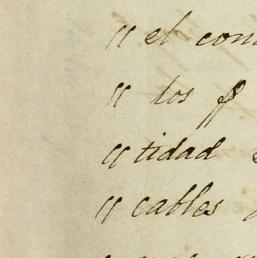 " el con
" los
" tidad
" cables